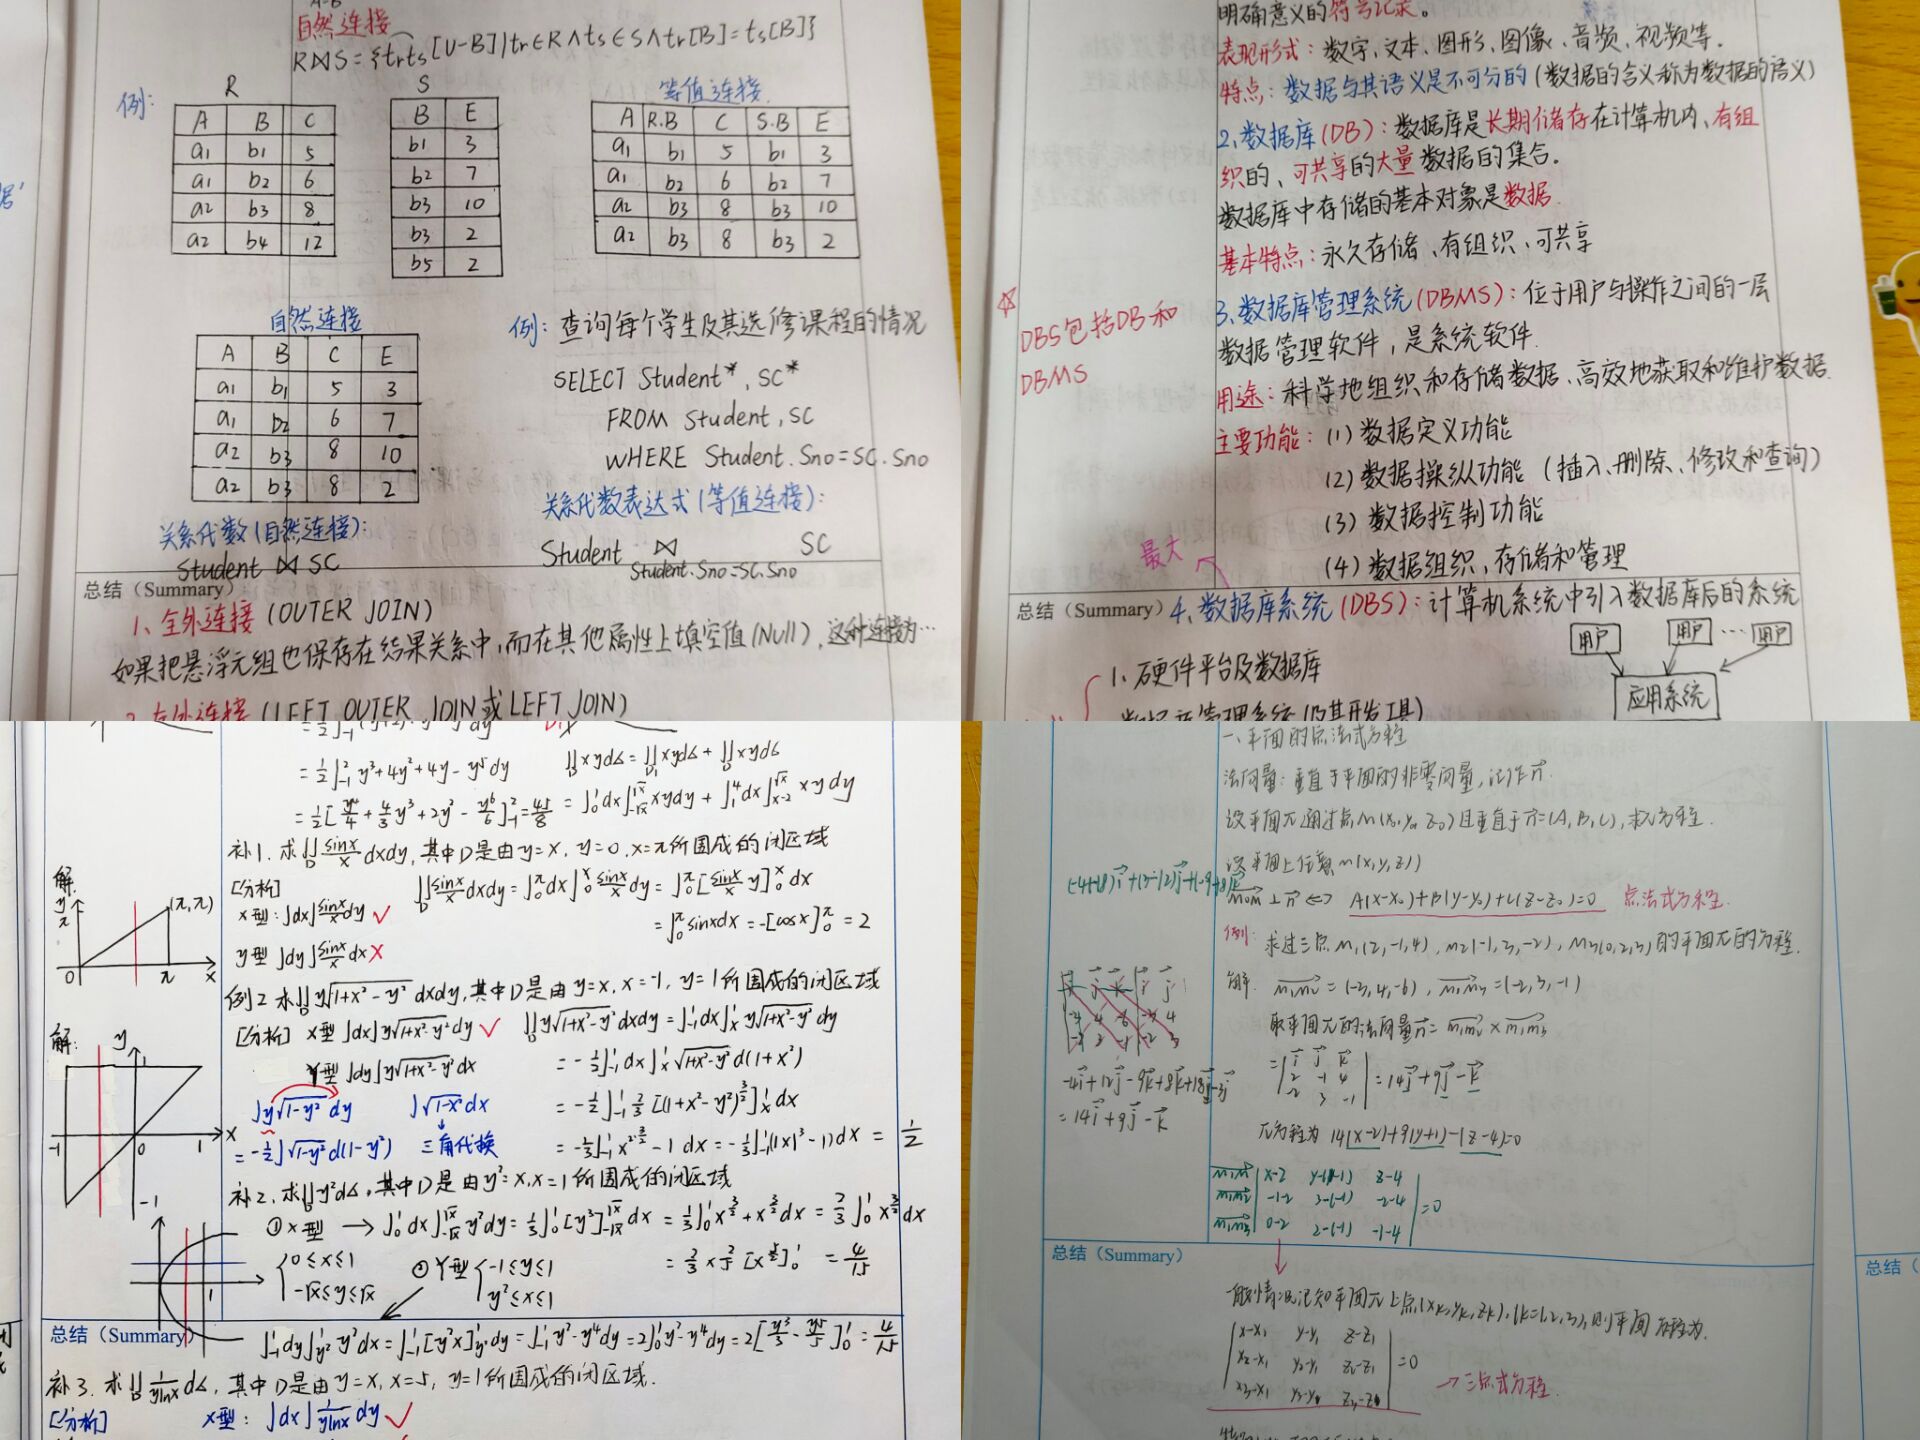 自然连接
R⋈S={trts[U-B]|tr∈R∧ts∈S∧tr[B]=ts[B]}
例:
R
A B C
a1 b1 5
a1 b2 6
a2 b3 8
a2 b4 12
S
B E
b1 3
b2 7
b3 10
b3 2
b5 2
等值连接
A R.B C S.B E
a1 b1 5 b1 3
a1 b2 6 b2 7
a2 b3 8 b3 10
a2 b3 8 b3 2
自然连接
A B C E
a1 b1 5 3
a1 b2 6 7
a2 b3 8 10
a2 b3 8 2
关系代数(自然连接):
Student ⋈ SC
例: 查询每个学生及其选修课程的情况
SELECT Student*, SC*
FROM Student, SC
WHERE Student.Sno=SC.Sno
关系代数表达式(等值连接):
Student ⋈ SC
Student.Sno=SC.Sno
总结(Summary)
1、全外连接(OUTER JOIN)
如果把悬浮元组也保存在结果关系中,而在其他属性上填空值(Null),这种连接为…
左外连接(LEFT OUTER JOIN或LEFT JOIN)
明确意义的符号记录。
表现形式:数字、文本、图形、图像、音频、视频等.
特点:数据与其语义是不可分的(数据的含义称为数据的语义)
2、数据库(DB):数据库是长期储存在计算机内、有组
织的、可共享的大量数据的集合。
数据库中存储的基本对象是数据.
基本特点:永久存储、有组织、可共享
3、数据库管理系统(DBMS):位于用户与操作之间的一层
数据管理软件,是系统软件.
用途:科学地组织和存储数据、高效地获取和维护数据.
主要功能:(1)数据定义功能
(2)数据操纵功能(插入、删除、修改和查询)
(3)数据控制功能
(4)数据组织、存储和管理
DBS包括DB和
DBMS
最大
总结(Summary) 4、数据库系统(DBS):计算机系统中引入数据库后的系统
用户 用户 … 用户
应用系统
1、硬件平台及数据库
数据库管理系统(及其开发工具)
=½∫₋₁² y³+4y²+4y-y⁵dy
=½[y⁴/4+4/3y³+2y²-y⁶/6]₋₁²=45/8
∬xydδ=∬xydδ+∬xydδ
=∫₀¹dx∫₋√x^√x xydy+∫₁⁴dx∫ₓ₋₂^√x xydy
补1. 求∬sinx/x dxdy,其中D是由y=x, y=0, x=π所围成的闭区域
解:
y
π
(π,π)
0 π x
[分析]
x型:∫dx∫sinx/x dy ✓
y型∫dy∫sinx/x dx ×
∬sinx/x dxdy=∫₀^π dx∫₀ˣ sinx/x dy=∫₀^π[sinx/x y]₀ˣ dx
=∫₀^π sinxdx=-[cosx]₀^π=2
例2 求∬y√(1+x²-y²) dxdy,其中D是由y=x, x=-1, y=1所围成的闭区域
解:
y
1
-1 0 1 x
-1
[分析] x型∫dx∫y√(1+x²-y²)dy ✓
Y型∫dy∫y√(1+x²-y²)dx
∫y√(1-y²)dy
=-½∫√(1-y²)d(1-y²)
∫√(1-x²)dx
三角代换
∬y√(1+x²-y²)dxdy=∫₋₁¹dx∫ₓ¹y√(1+x²-y²)dy
=-½∫₋₁¹dx∫ₓ¹√(1+x²-y²)d(1+x²)
=-½∫₋₁¹ 2/3[(1+x²-y²)^(3/2)]ₓ¹dx
=-⅓∫₋₁¹x^(2·3/2)-1 dx=-⅓∫₋₁¹(|x|³-1)dx=½
补2. 求∬y²dδ,其中D是由y²=x, x=1所围成的闭区域
①x型 → ∫₀¹dx∫₋√x^√x y²dy=⅓∫₀¹[y³]₋√x^√x dx=⅓∫₀¹x^(3/2)+x^(3/2)dx=2/3∫₀¹x^(3/2)dx
0≤x≤1
-√x≤y≤√x
②Y型
-1≤y≤1
y²≤x≤1
=2/3×2/5[x^(5/2)]₀¹=4/15
1
总结(Summary)
∫₋₁¹dy∫_y²¹y²dx=∫₋₁¹[y²x]_y²¹dy=∫₋₁¹y²-y⁴dy=2∫₀¹y²-y⁴dy=2[y³/3-y⁵/5]₀¹=4/15
补3. 求∬1/(ylnx)dδ,其中D是由y=x, x=5, y=1所围成的闭区域.
[分析] x型:∫dx∫1/(ylnx)dy ✓
一、平面的点法式方程
法向量:垂直于平面的非零向量,记作n⃗.
设平面π通过点M(x₀,y₀,z₀)且垂直于n⃗=(A,B,C),求π方程.
设平面上任意M(x,y,z)
M₀M⊥n⃗⇔A(x-x₀)+B(y-y₀)+C(z-z₀)=0 点法式方程.
例: 求过三点M₁(2,-1,4), M₂(-1,3,-2), M₃(0,2,3)的平面π的方程.
解: M₁M₂=(-3,4,-6), M₁M₃=(-2,3,-1)
取平面π的法向量n⃗=M₁M₂×M₁M₃
=14j⃗+9j⃗-k⃗
π方程为14(x-2)+9(y+1)-(z-4)=0
-4i⃗+12j⃗-9k⃗+8k⃗+18i⃗-3j⃗
=14i⃗+9j⃗-k⃗
M₁M x-2 y-(-1) z-4
M₁M₂ -1-2 3-(-1) -2-4 =0
M₁M₃ 0-2 2-(-1) -1-4
总结(Summary)
总结(
一般情况已知平面π上点(xk,yk,zk),(k=1,2,3),则平面方程为.
x-x₁ y-y₁ z-z₁
x₂-x₁ y₂-y₁ z₂-z₁ =0
x₃-x₁ y₃-y₁ z₃-z₁
→三点式方程.